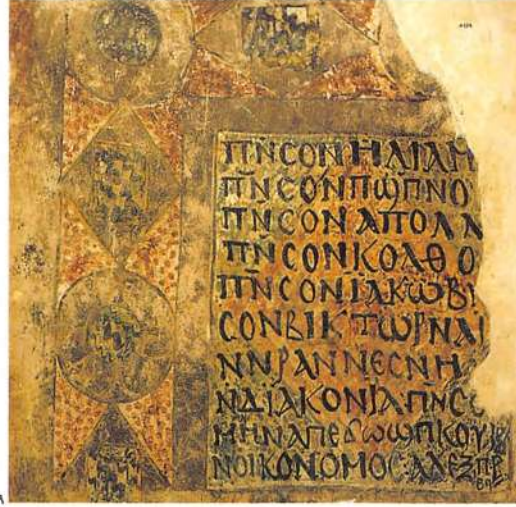 ΠΝ̅ϹΟΝ ΗΛΙΑΜ
ΠΝ̅ϹΟΝΠϢΠΝΟ
ΠΝ̅ϹΟΝ ΑΠΟΛΛ
ΠΝ̅ϹΟΝΚΟΛΘΟ
ΠΝ̅ϹΟΝΪΑΚⲰΒΙ
ϹΟΝΒΙΚΤⲰΡΝΑΙ
ΝΝΡΑΝΝΕϹΝΗ
ΝΔΙΑΚΟΝΙΑ·ΠΝ̅Ϲ
ΜΗΝΑΠΕ
ΝΟΙΚΟΝΟΜΟϹ·ΑΛΕΞ